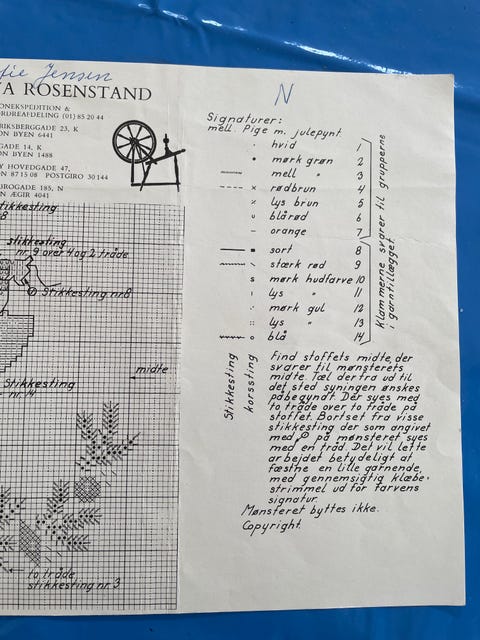 Jensen
A ROSENSTAND
ONEKSPEDITION &
ORDREAFDELING (01) 85 20 44
RIKSBERGGADE 23, K
ON BYEN 6441
GADE 14, K
ON BYEN 1488
Y HOVEDGADE 47,
N 87 15 08 POSTGIRO 30 144
BROGADE 185, N
N ÆGIR 4041
stikkesting
8
stikkesting
nr. 9 over 4 og 2 tråde
Stikkesting nr 8
midte
Stikkesting
nr. 14
to tråde
stikkesting nr. 3
N
Signaturer:
mell. Pige m. julepynt
· hvid 1
• mørk grøn 2
mell " 3
x rødbrun 4
lys brun 5
u blårød 6
- orange 7
■ sort 8
\ stærk rød 9
s mørk hudfarve 10
ı lys " 11
mørk gul 12
:: lys " 13
o blå 14
Klammerne svarer til grupperne
i garntillægget
Stikkesting
korssting
Find stoffets midte, der
svarer til mønsterets
midte. Tæl derfra ud til
det sted syningen ønskes
påbegyndt. Der syes med
to tråde over to tråde på
stoffet. Bortset fra visse
stikkesting der som angivet
med på mønsteret syes
med en tråd. Det vil lette
arbejdet betydeligt at
fæstne en lille garnende,
med gennemsigtig klæbe-
strimmel ud for farvens
signatur.
Mønsteret byttes ikke.
Copyright.